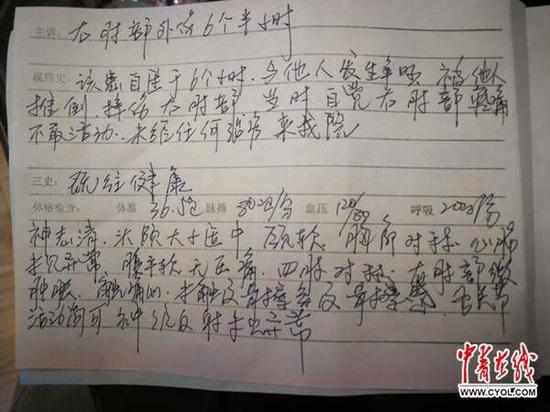 主诉: 右肘部外伤6个半小时
现病史: 该患自述于6个小时.与他人发生争吵 被他人
推倒.摔伤右肘部 当时自觉右肘部疼痛
不敢活动.未经任何 来我院
三史: 既往健康
体格检查: 体温 36.5℃ 脉搏 80次/分 血压 120/80 呼吸 20次/分
神志清.头颅大小适中 颈软.胸廓对称.心肺
未见异常.腹平软无压痛.四肢对称.右肘部
肿胀. 触痛(+).未触及骨擦
活动尚可 神经反射未见异常
中青在线
WWW.CYOL.COM